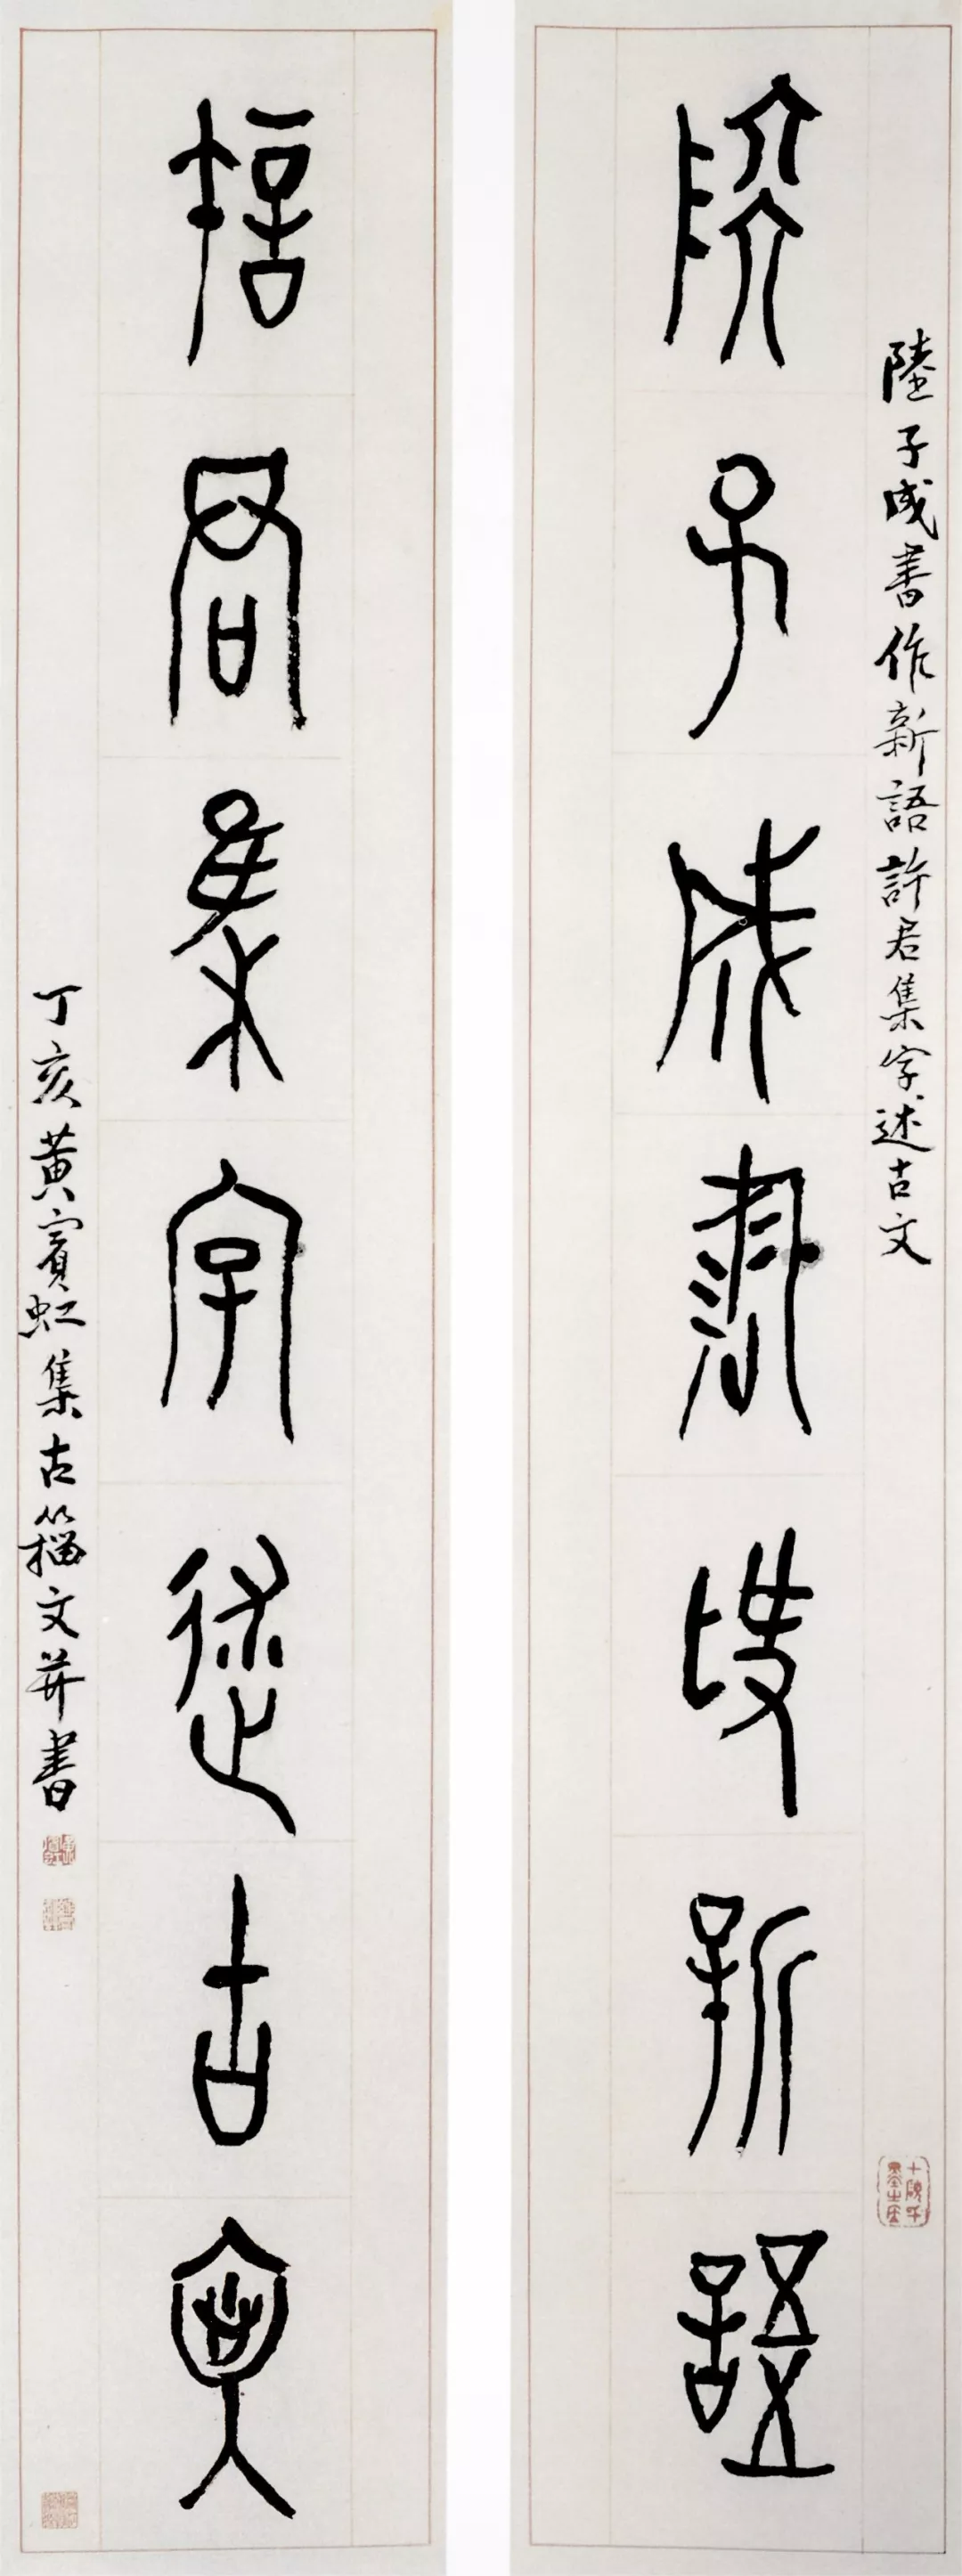 陸子成書作新語
陸子成書作新語許君集字述古文
許君集字述古文
丁亥黃賓虹集古籀文并書